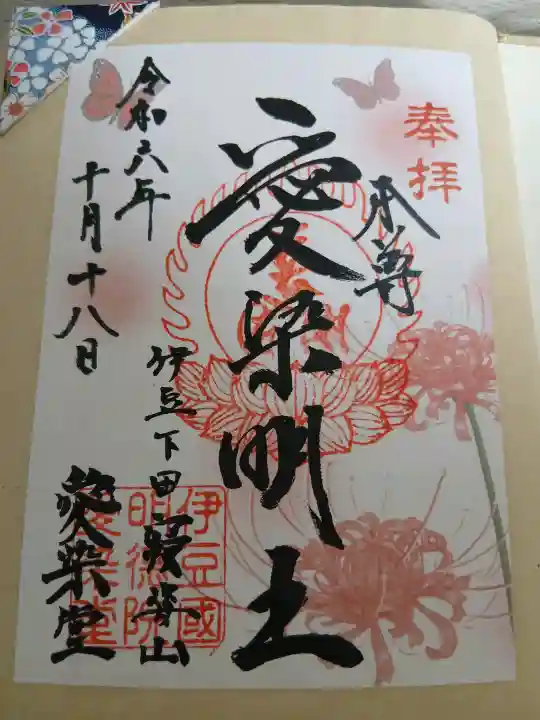 奉拝
本尊
愛染明王
令和六年
十月十八日
伊豆下田
愛染堂
伊豆國
明徳院
愛染堂